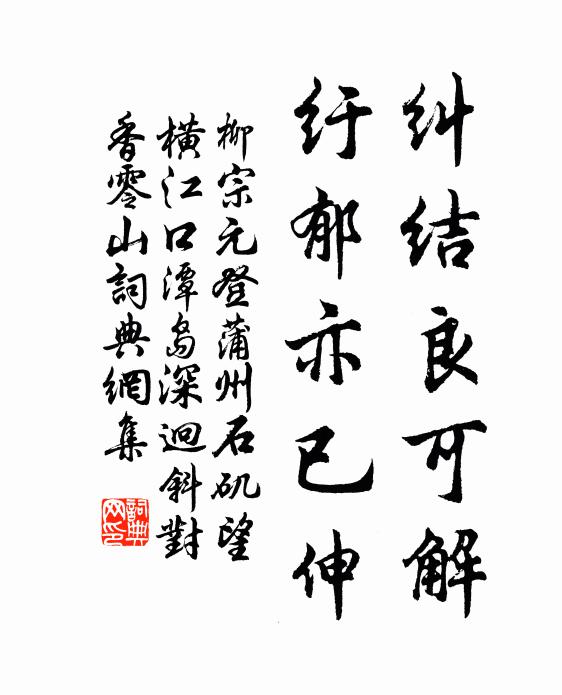 糾结良可解
纡郁亦已伸
柳宗元登蒲州石矶望
横江口潭岛深迴斜對
香零山詞典網集
詞典网印